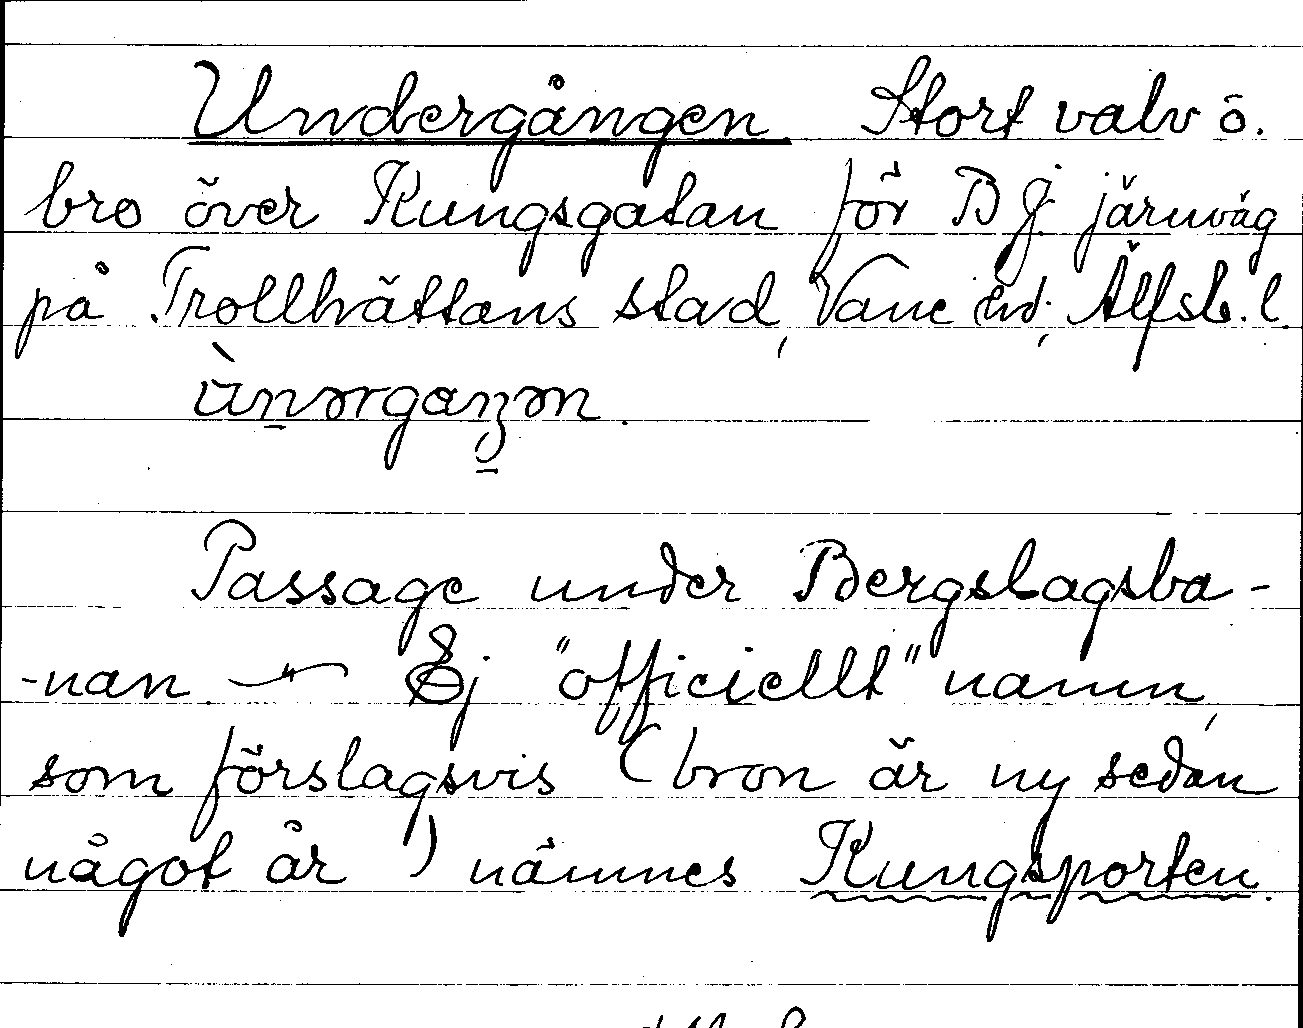 Undergången. Stort valv o.
bro över Kungsgatan för B J. järnväg
på Trollhättans stad, Vane hd, Älfsb. l.
ùnərgaŋən.
Passage under Bergslagsba-
-nan — Ej "officiellt" namn,
som förslagsvis (bron är ny sedan
något år) nämnes Kungsporten.